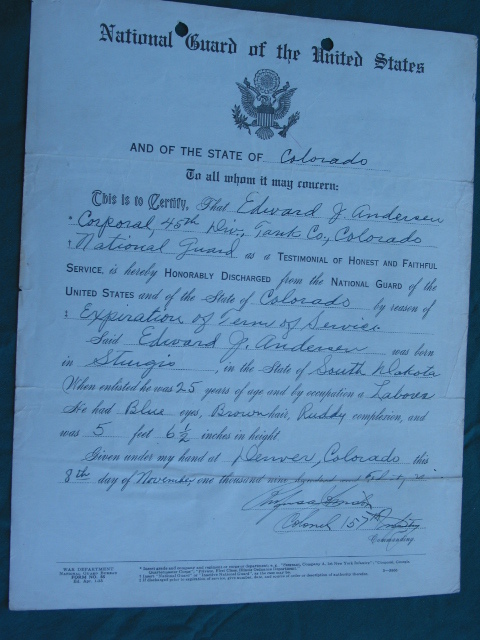 National Guard of the United States
AND OF THE STATE OF Colorado
To all whom it may concern:
This is to Certify, That Edward J. Andersen
* Corporal, 45th Div., Tank Co., Colorado
† National Guard as a TESTIMONIAL OF HONEST AND FAITHFUL
SERVICE, is hereby HONORABLY DISCHARGED from the NATIONAL GUARD of the
UNITED STATES and of the State of Colorado by reason of
‡ Expiration of Term of Service.
Said Edward J. Andersen, was born
in Sturgis, in the State of South Dakota
When enlisted he was 25 years of age and by occupation a Laborer
He had Blue eyes, Brown hair, Ruddy complexion, and
was 5 feet 6 ½ inches in height.
Given under my hand at Denver, Colorado this
8th day of November one thousand nine hundred and
Colonel 157th Infantry
Commanding.
WAR DEPARTMENT
NATIONAL GUARD BUREAU
FORM NO. 55